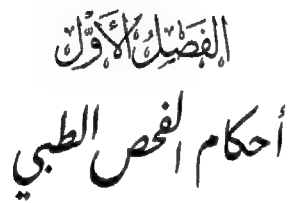 الفَصْلُ الأَوَّل
أحكام الفحص الطبي